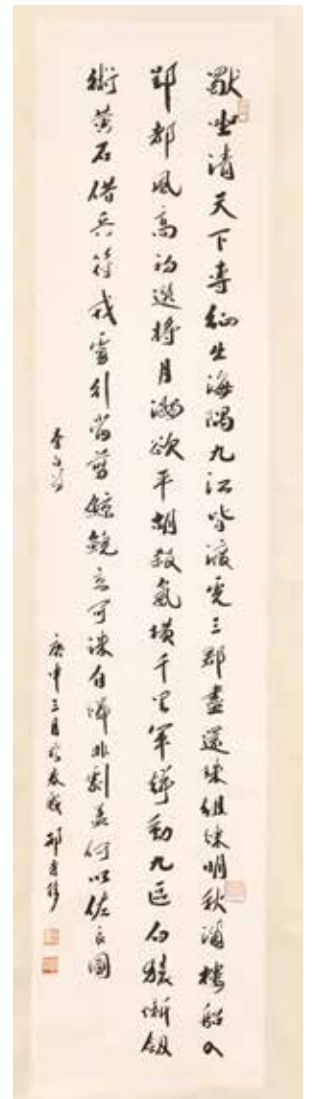 獨坐清天下專征出海隅九江皆渡虎三郡盡還珠組練明秋浦樓船入
郢都風高初選將月滿欲平胡殺氣橫千里軍聲動九區白猿慚劍
術黃石借兵符戎虜行當剪鯨鯢立可誅自憐非劇孟何以佐良圖
李白詩
庚申三月於